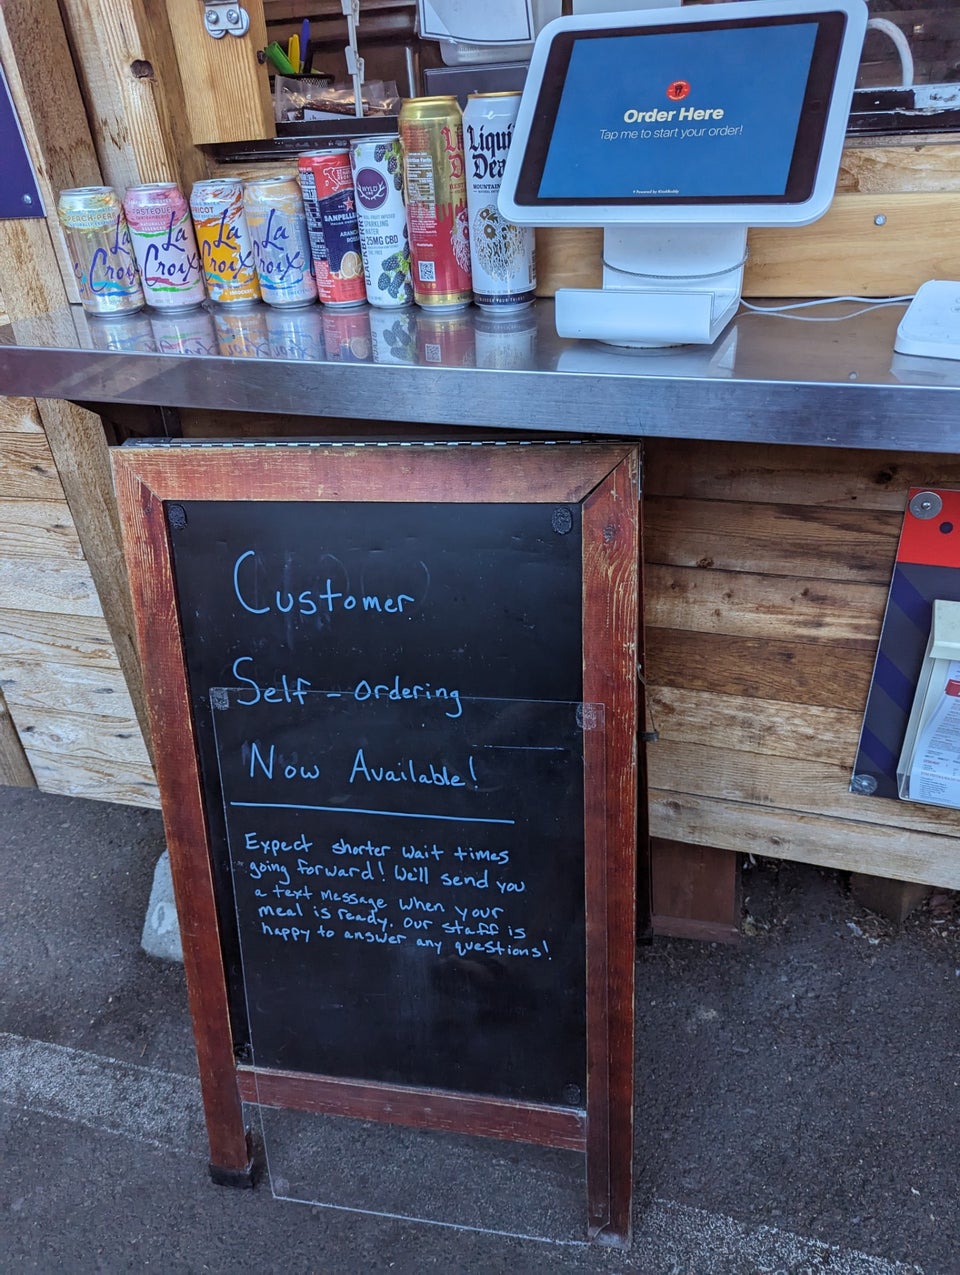 Order Here
Tap me to start your order!
Powered by KioskBuddy
PEACH-PEAR
La
Croix
PASTEQUE
La
Croix
La
Croix
La
Croix
SANPELLE
WYLD
CBD
BLACKBERRY
SPARKLING
WATER
25MG CBD
Nutrition Facts
Liquid
Dea
MOUNTAIN
Customer
Self - ordering
Now Available!
Expect shorter wait times
going forward! We'll send you
a text message when your
meal is ready. Our staff is
happy to answer any questions!